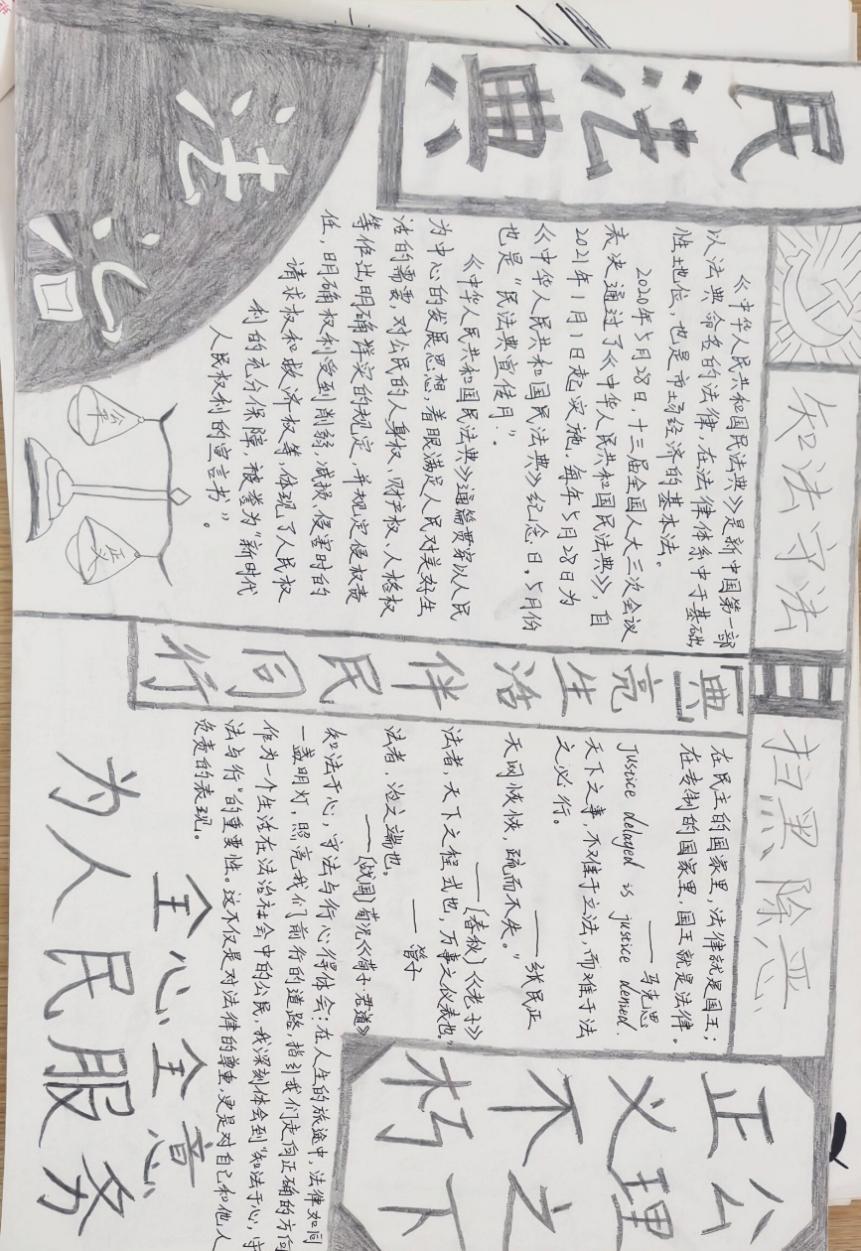 民法典
知法守法
扫黑除恶
《中华人民共和国民法典》是新中国第一部
以法典命名的法律，在法律体系中于基础
性地位，也是市场经济的基本法。
2020年5月28日，十三届全国人大三次会议
表决通过了《中华人民共和国民法典》，自
2021年1月1日起实施，每年5月28日为
《中华人民共和国民法典》纪念日，5月份
也是“民法典宣传月”。
《中华人民共和国民法典》通篇贯穿以人民
为中心的发展思想，着眼满足人民对美好生
活的需要，对公民的人身权、财产权、人格权
等作出明确翔实的规定，并规定侵权责
任，明确权利受到削弱，减损、侵害时的
请求权和救济权等，体现了人民权
利的充分保障，被誉为“新时代
人民权利的宣言书”。
法治
典亮生活伴民同行
在民主的国家里，法律就是国王；
在专制的国家里，国王就是法律。
——马克思
justice delayed is justice denied.
天下之事，不难于立法，而难于法
之必行。
天网恢恢，疏而不失。”
——〔春秋〕《老子》
法者，天下之程式也，万事之仪表也。
——管子
法者，治之端也。
——〔战国〕荀况《荀子·君道》
知法于心，守法与行心得体会：在人生的旅途中，法律如同
一盏明灯，照亮我们前行的道路，指引我们走向正确的方向
作为一个生活在法治社会中的公民，我深刻体会到“知法于心，守
法与行”的重要性。这不仅是对法律的尊重，更是对自己和他人
负责的表现。
公理之下
正义不朽
全心全意
为人民服务